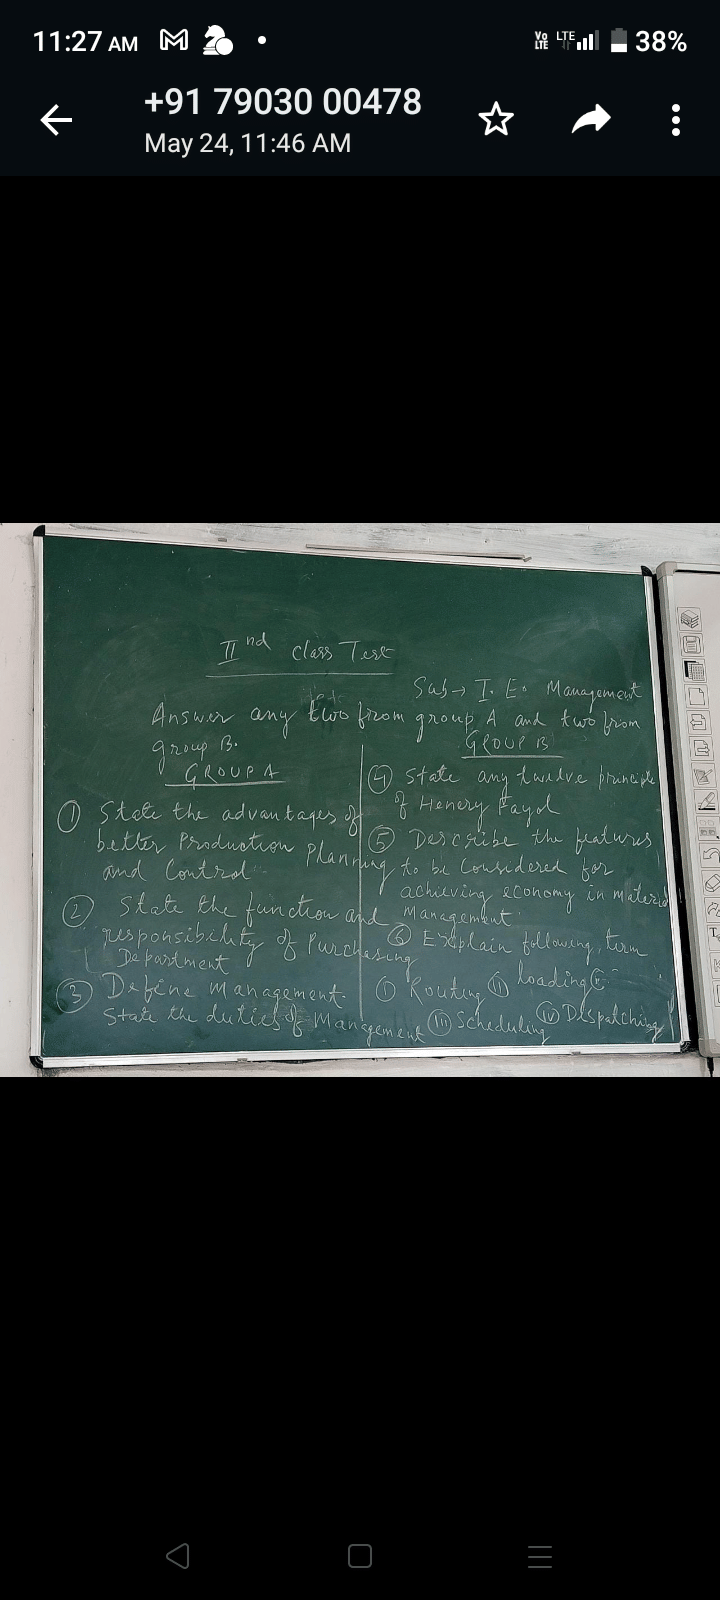 11:27 AM
Vo LTE LTE 38%
+91 79030 00478
May 24, 11:46 AM
IInd class Test
Sub → I. E. Management
Answer any two from group A and two from
group B.
GROUP A
① State the advantages of
better Production Planning
and Control
② State the function and
responsibility of Purchasing
Department
③ Define Management.
State the duties of Management
GROUP B
④ State any twelve principle
of Henery Fayol
⑤ Describe the features
to be Considered for
achieving economy in material
Management.
⑥ Explain following term
(i) Routing (ii) loading
(iii) Scheduling (iv) Dispatching